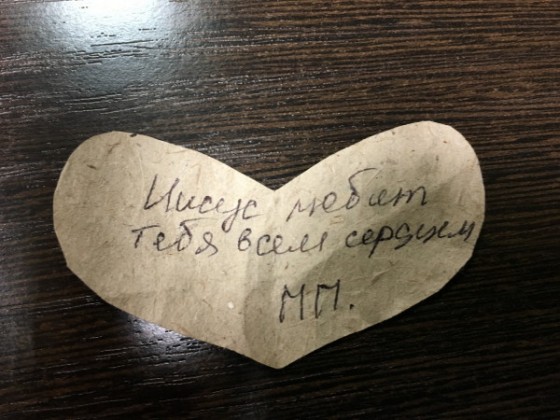 Иисус любит
тебя всем сердцем
МП.